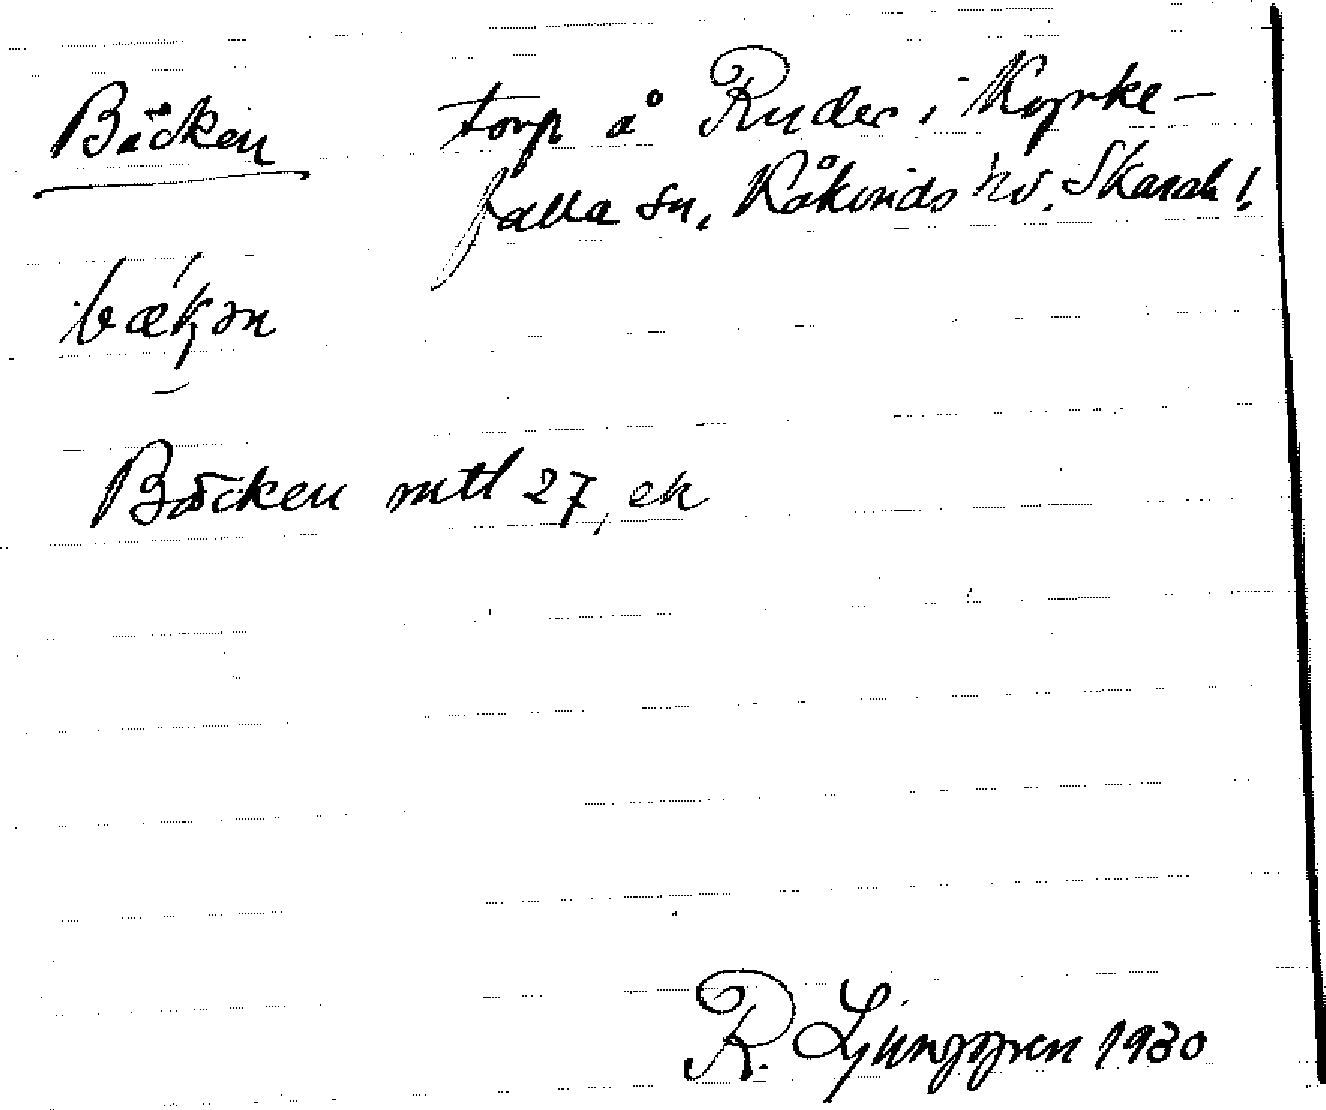 Bäcken torp å Ruder i Kyrke-
falla sn, Kåkinds hd. Skarab l.
bækən
Bäcken mtl 27, ek
R. Ljunggren 1930